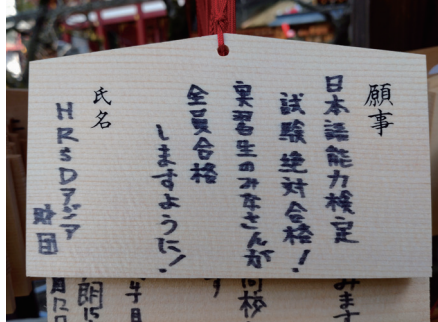 願事
日本語能力検定
試験絶対合格！
実習生のみなさんが
全員合格
しますように！
氏名
HRSDアジア
財団